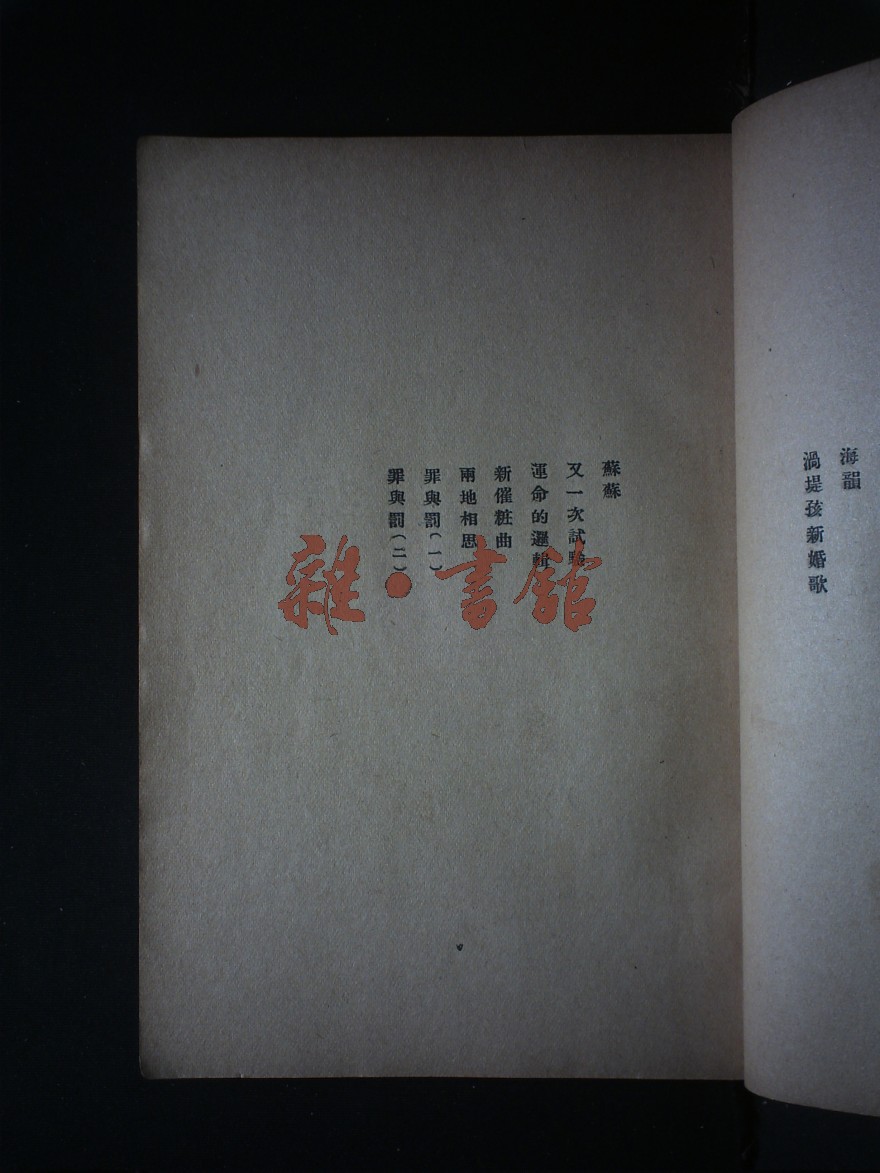 海韻
渦堤孩新婚歌
蘇蘇
又一次試驗
運命的邏輯
新催粧曲
兩地相思
罪與罰(一)
罪與罰(二)
雜·書館